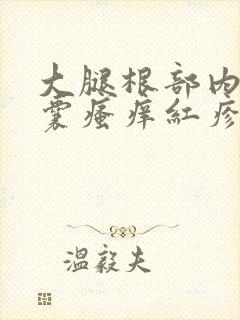 大腿根部内
囊瘙痒红疹
温毅夫